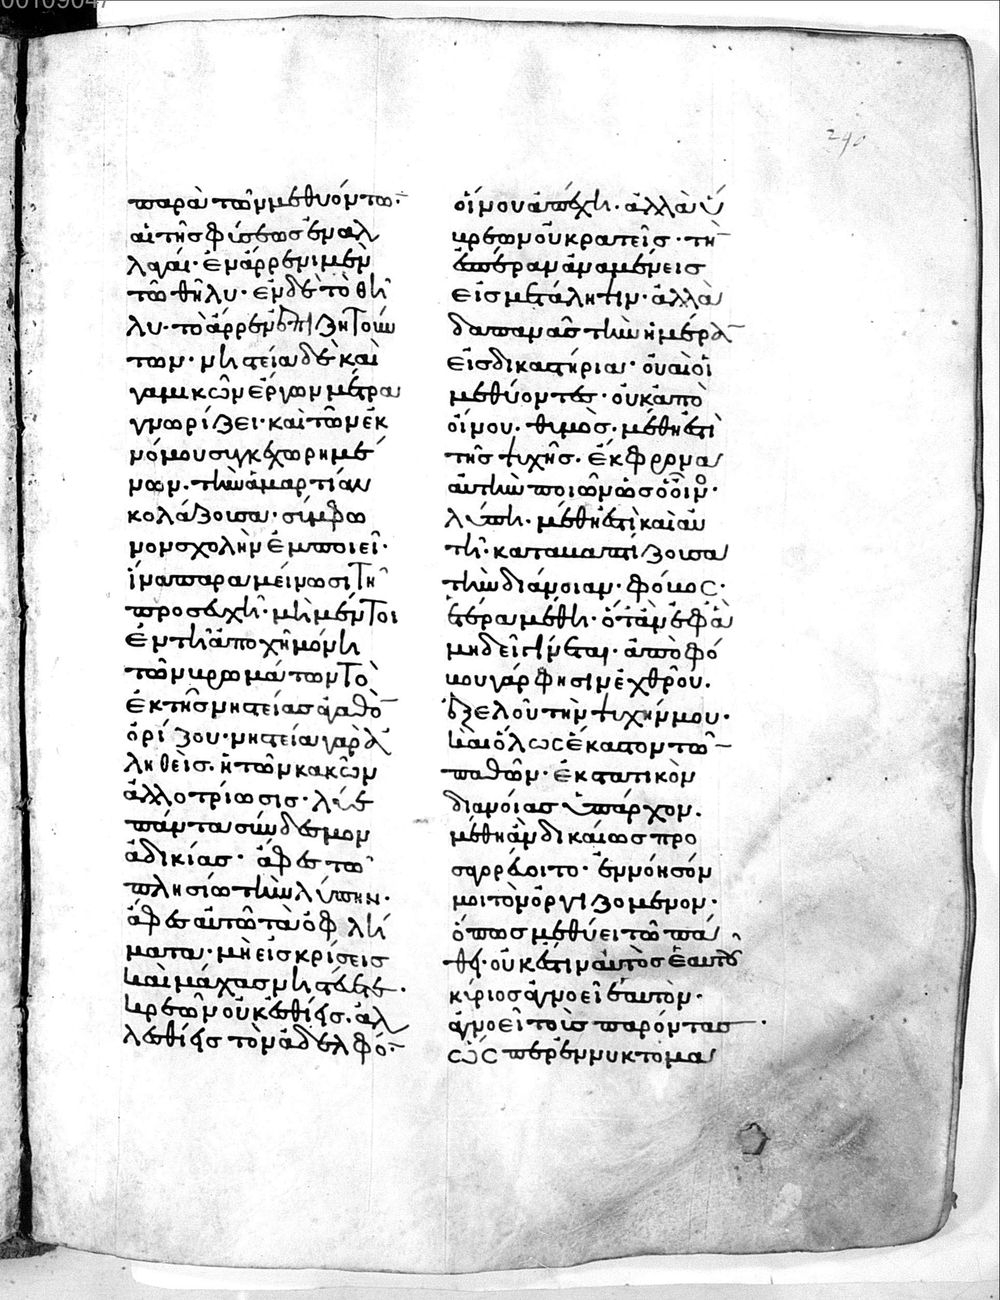 παρὰ τῶν μεθυόντων·
αἱ τῆς φύσεως ἐναλ
λαγαί· ἐν ἄρρενι μὲν
τὸ θῆλυ· ἐν δὲ τὸ θή
λυ· τὸ ἄρρεν ἐπιζητούν
των· νηστεία δὲ καὶ
γαμικῶν ἔργων μέτρα
γνωρίζει· καὶ τῶν ἐκ
νόμου συγκεχωρημέ
νων· τὴν ἀμαρτίαν
κολάζουσα· σύμφω
νον σχολὴν ἐμποιεῖ·
ἵνα παραμείνωσι τῆ
προσευχῆ· μὴ μέντοι
ἐν τῆ ἀποχῆ μόνη
τῶν βρωμάτων τὸ
ἐκ τῆς νηστείας ἀγαθὸν
ὁρίζου· νηστεία γὰρ ἀ
ληθεὶς· ἡ τῶν κακῶν
ἀλλοτρίωσις· λύε
πάντα σύνδεσμον
ἀδικίας· ἄφες τῶ
πλησίω τὴν λύπην·
ἄφες αὐτῶ τὰ ὀφλή
ματα· μὴ εἰς κρίσεις
καὶ μάχας νηστεύετε·
κρεῶν οὐκ ἐσθίεις· ἀλ
λ' ἐσθίεις τὸν ἀδελφόν·
οἴνου ἀπέχη· ἀλλὰ ὕ
βρεων οὐ κρατεῖς· τὴν
ἑσπέραν ἀναμένεις
εἰς μετάληψιν· ἀλλὰ
δαπανᾶς τὴν ἡμέραν
εἰς δικαστήρια· οὐαὶ οἱ
μεθύοντες· οὐκ ἀπὸ
οἴνου· θυμὸς· μέθη ἐστὶ
τῆς ψυχῆς· ἔκφρονα
αὐτὴν ποιῶν ὡς ὁ οἶνος·
λύπη· μέθη ἐστὶ καὶ αὐ
τὴ· καταβαπτίζουσα
τὴν διάνοιαν· φόβος·
ἑτέρα μέθη· ὅταν ἐφ' ἃ
μὴ δεῖ γίνεται· ἀπὸ φό
βου γάρ φησιν ἐχθροῦ·
ἐξελοῦ τὴν ψυχήν μου·
καὶ ὅλως ἕκαστον τῶν
παθῶν· ἐκστατικὸν
διανοίας ὑπάρχον·
μέθη ἂν δικαίως προ
σαγορεύοιτο· ἐννόησόν
μοι τὸν ὀργιζόμενον·
ὅπως μεθύει τῶ πά
θει· οὐκ ἔστιν αὐτὸς ἑαυτοῦ
κύριος ἀγνοεῖ ἑαυτὸν·
ἀγνοεῖ τοὺς παρόντας·
ὡς περ ἐν νυκτομα